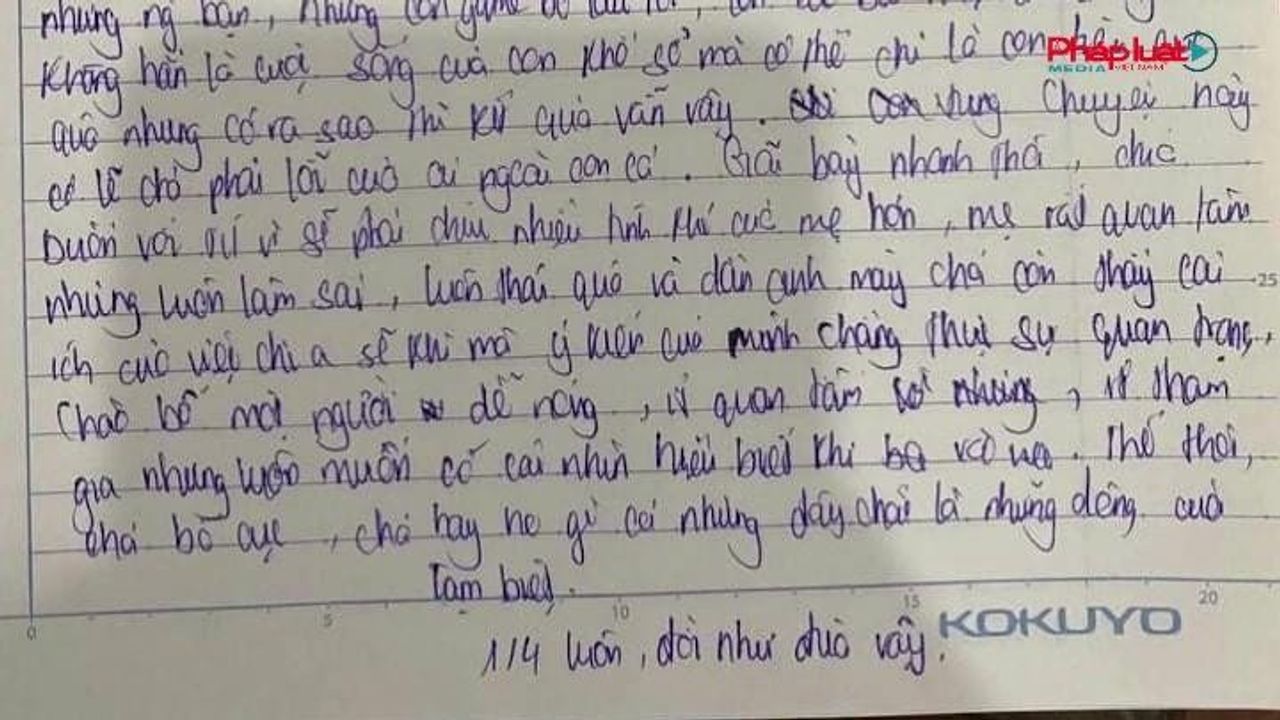 những ng bạn, những con game
Không hẳn là cuộc sống của con khổ sở mà có thể chỉ là con
quá nhưng có ra sao thì kq quả vẫn vậy. con Chuyện này
có lẽ chả phải lỗi của ai ngoài con cả. Giãi bày nhanh thế, chắc
buồn với vì sẽ phải chịu nhiều tính khí của mẹ hơn, mẹ rất quan tâm
nhưng luôn làm sai, luôn thái quá và dần anh mày chả còn thấy cái
ích của việc chia sẽ khi mà ý kiến của mình chẳng thực sự quan trọng,
Chào bố một người dễ nóng, ít quan tâm nhưng, ít tham
gia nhưng luôn muốn có cái nhìn hiểu biết khi về. Thế thôi,
chả bố cục, chả hay ho gì cả nhưng đây chắc là những dòng cuối
Tạm biệt.
1/4 luôn, đời như đùa vậy.
Pháp luật
MEDIA VIỆT NAM
25
0 5 10 15 20
KOKUYO